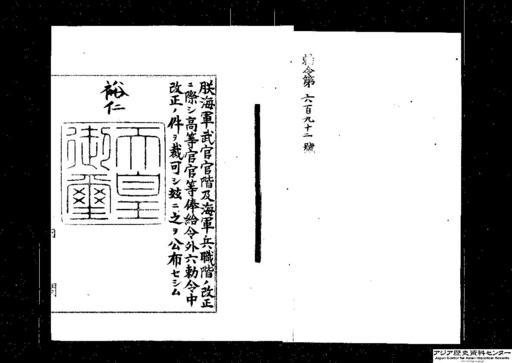 勅令第六百九十二號
朕海軍武官官階及海軍兵職階ノ改正
ニ際シ高等官官等俸給令外六勅令中
改正ノ件ヲ裁可シ玆ニ之ヲ公布セシム
裕仁
天皇
御璽
内閣
アジア歴史資料センター
Japan Center for Asian Historical Records